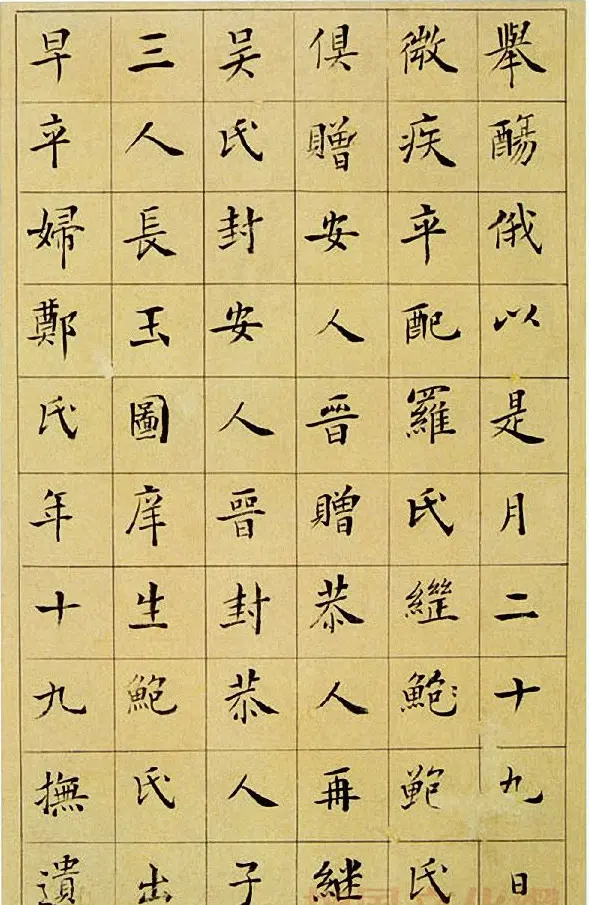 舉酓俄以是月二十九日
微疾卒配羅氏繼鮑鮑氏
俱贈安人晉贈恭人再継
吴氏封安人晉封恭人子
三人長玉圖庠生鮑氏出
早卒婦鄭氏年十九撫遺